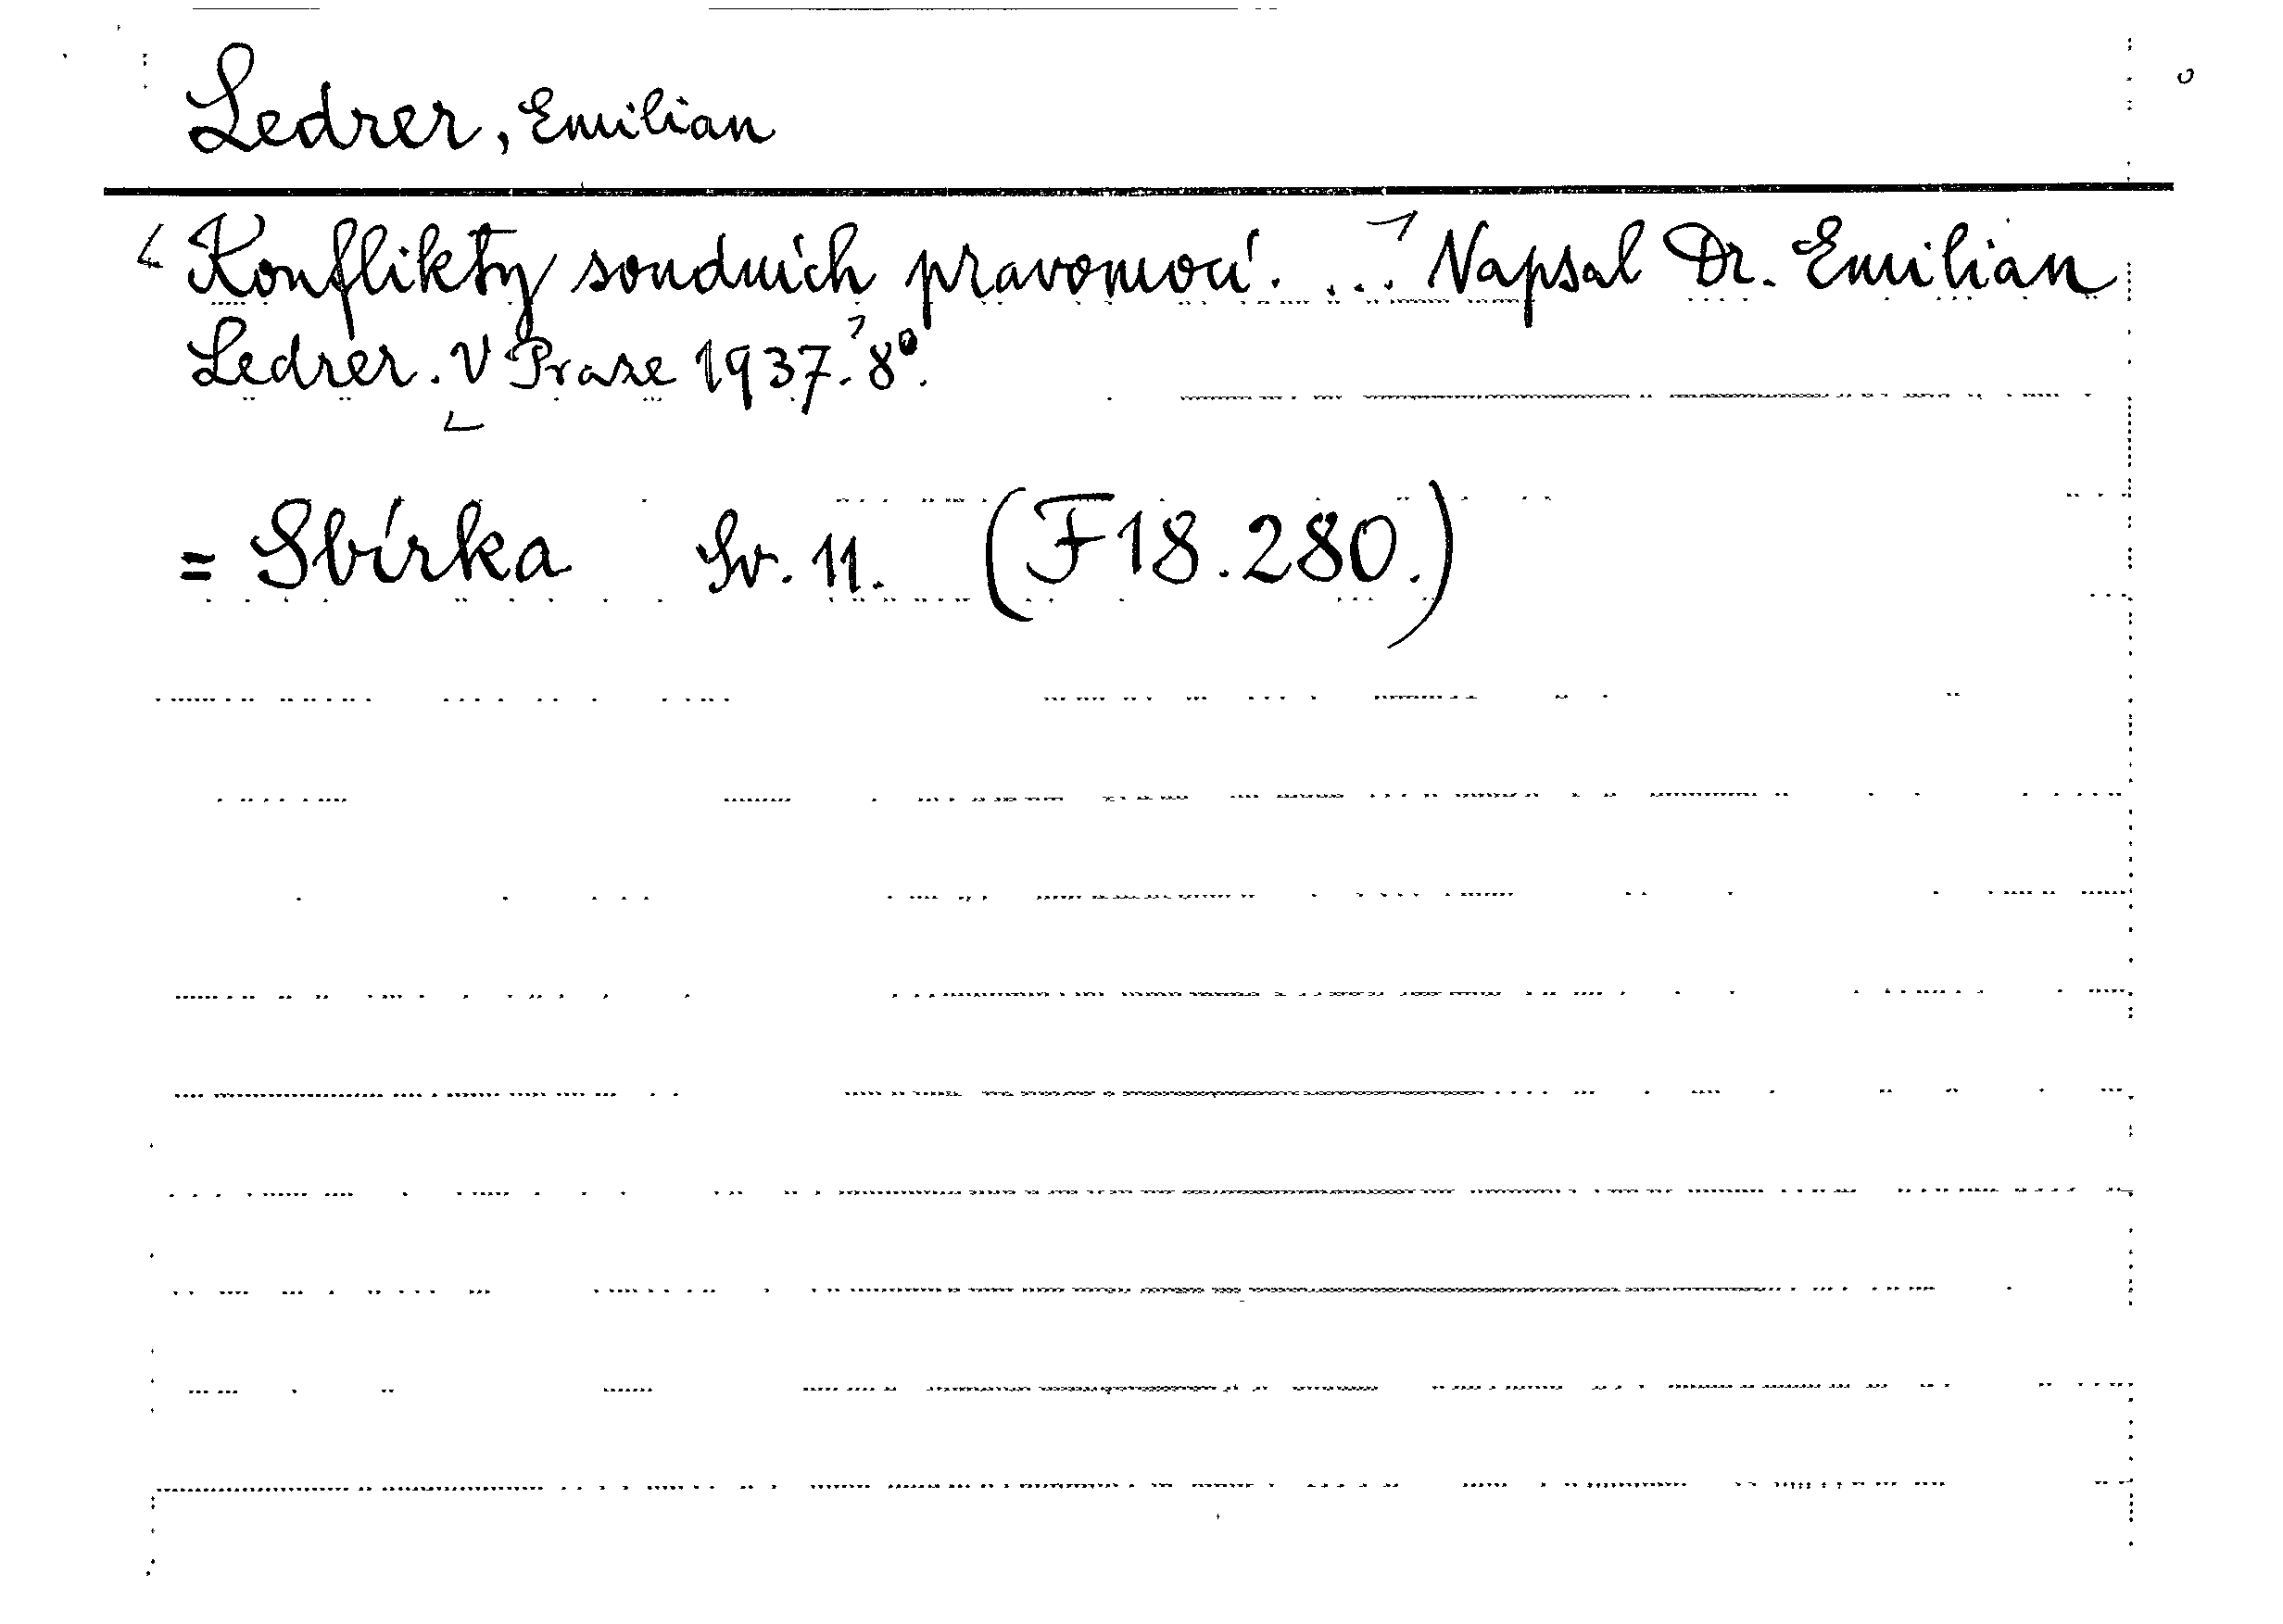 Ledrer, Emilian
Konflikty soudních pravomocí. ... Napsal Dr. Emilian
Ledrer. V Praze 1937. 8°.
= Sbírka Sv. 11. (F 18.280.)